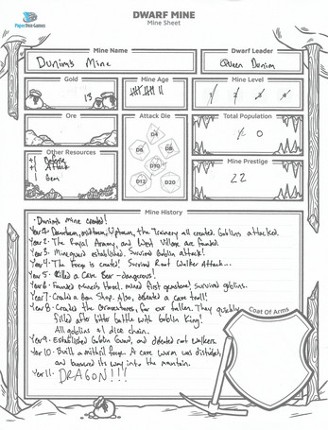 PaperDiceGames
DWARF MINE
Mine Sheet
Mine Name
Dwarf Leader
Dunim's Mine
Queen Denim
Gold
Mine Age
Mine Level
13
Ore
Attack Die
Total Population
0
D4
D6
D8
D10
D12
D20
Other Resources
+1 Defense
+1 Attack
1 Gem
Mine Prestige
22
Mine History
· Dunim's Mine created!
Year 1. Downtown, midtown, Uptown, the Tannery all created. Goblins attacked.
Year 2. The Royal Armory, and West Village are founded.
Year 3. Mineguard established. Survived Goblin attack!
Year 4. The Forge is created! Survived Root Walker Attack...
Year 5. Killed a Cave Bear - dangerous!
Year 6. Founded Miner's Hovel, mined first gemstones! Survived goblins.
Year 7. Created a Gem Shop. Also, defeated a cave troll!
Year 8. Created the Crematorium, for our fallen. They quickly
filled after bitter battle with Goblin King!
All goblins +1 dice chain.
Year 9. Established Goblin Guard, and defeated root walkers.
Year 10. Built a mithril forge. A cave wurm was disturbed
and burrowed its way into the mountain.
Year 11. DRAGON!!!
Coat Of Arms